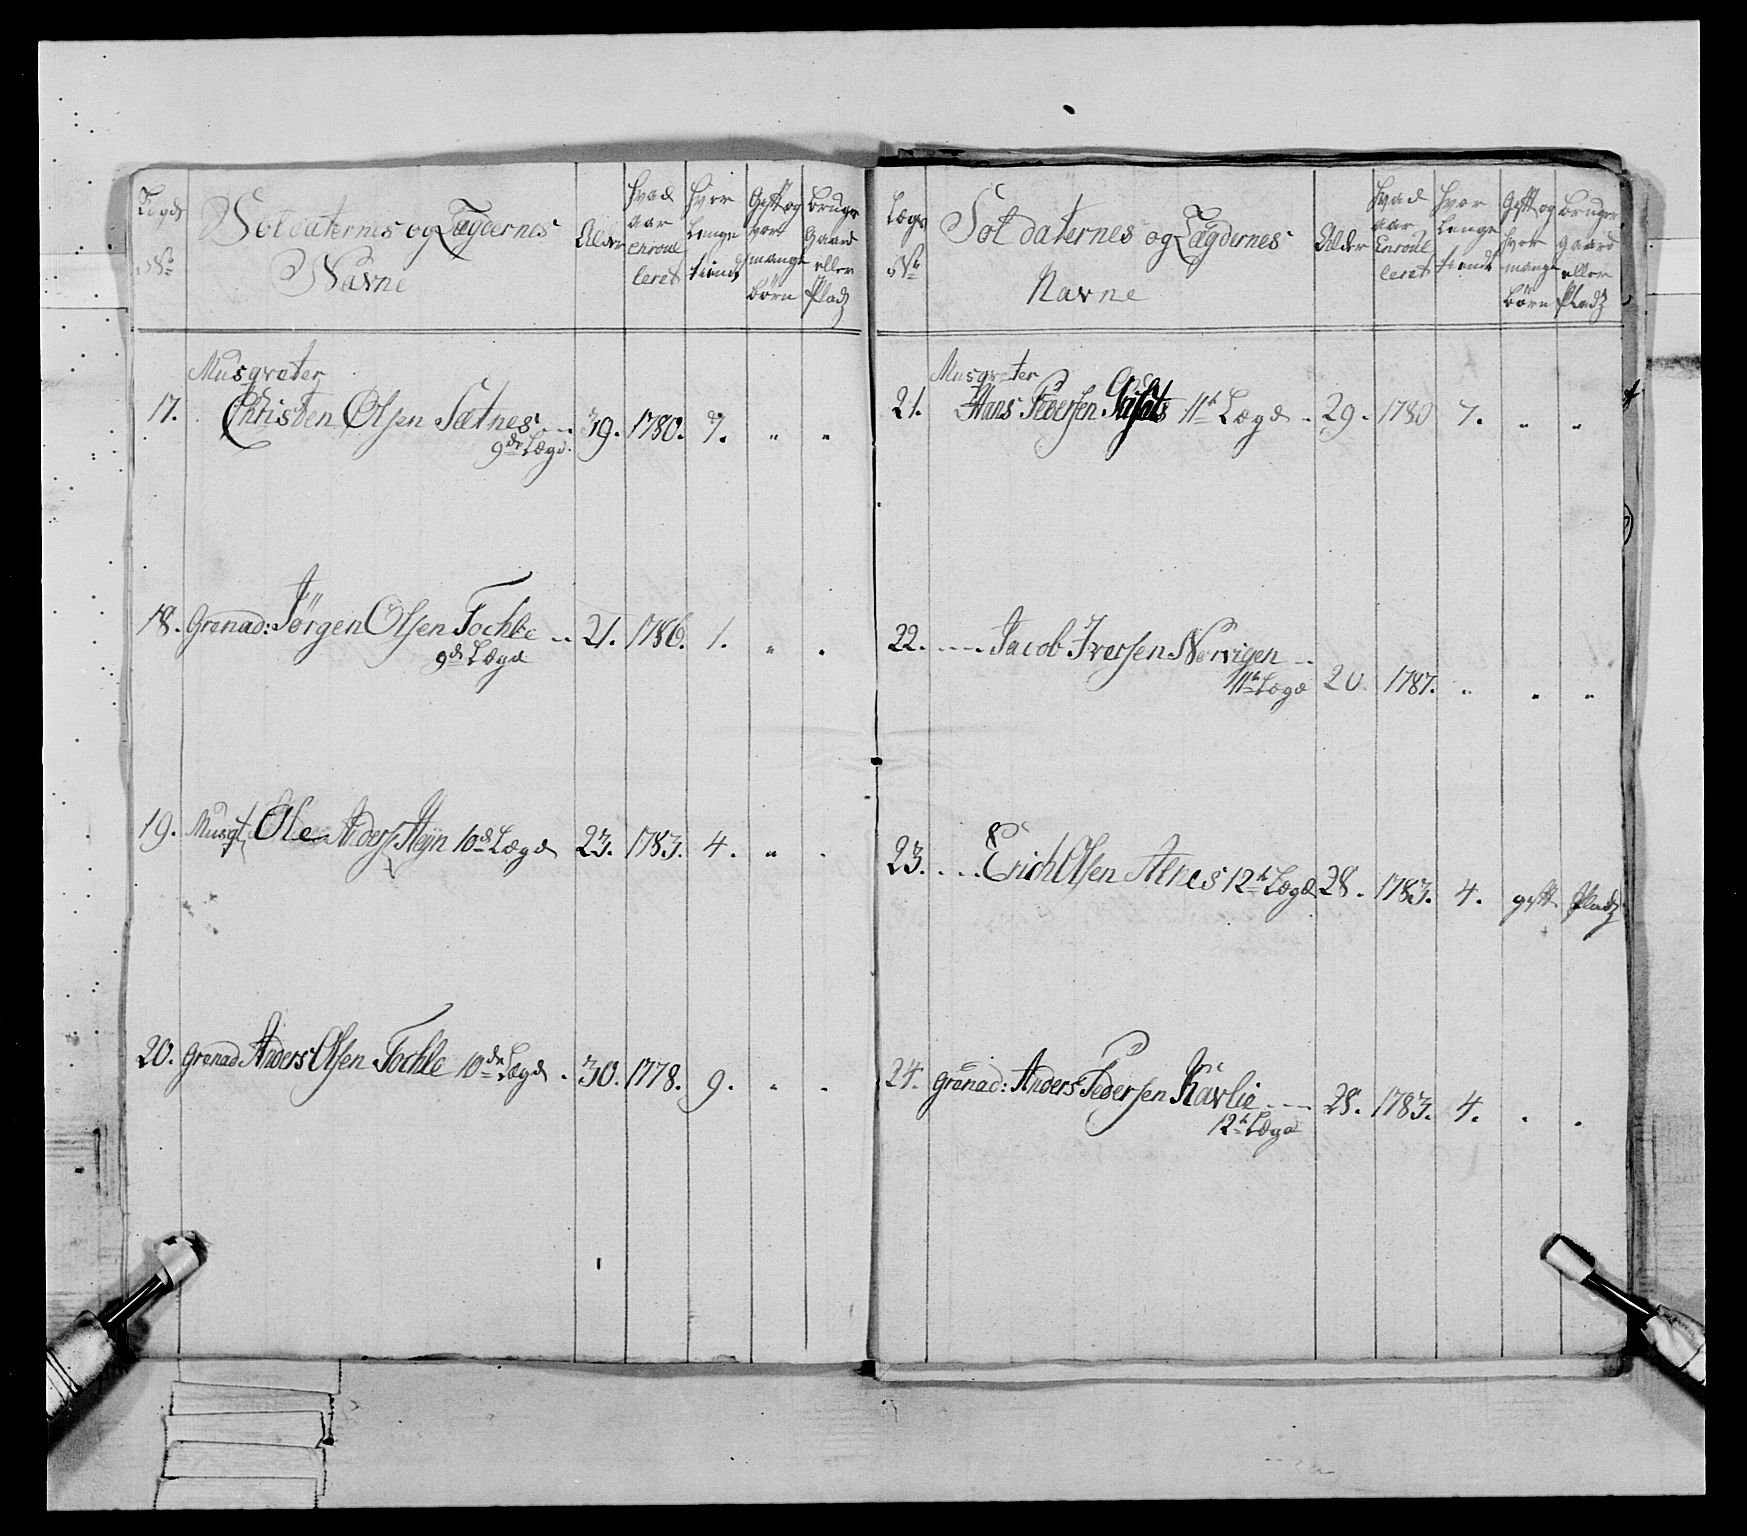 Lægds No
Soldaternes og Lægdernes Navne
Alder
hvad aar Enroulleret
hvor Lenge tient
Gift og hvor mange børn
bruger Gaard eller Pladz
Musqveter
17. Christen Olsen Sætnes 39. 1780. 7. " "
9de Lægd.
18. Grenad: Jørgen Olsen Tochle 21. 1786. 1. " .
9de Lægd
19. Musqt Ole Anders: 10de Lægd 23. 1783. 4. " .
20. Grenad Anders Olsen Tochle 10de Lægd . 30. 1778. 9. . .
Lægds No
Soldaternes og Lægdernes Navne
Alder
hvad aar Enroulleret
hvor Lenge tiendt
Gift og hvor mange børn
bruger gaard eller Pladz
Musqveter
21. Hans Pedersen 11te Lægd . 29. 1780 7. " "
22. Jacob Iversen Norvigen
11te Lægd 20. 1787. " " "
23. Erich Olsen Alnes 12te Lægd 28. 1783. 4. gift Pladz
24. Grenad: Anders Pedersen Kavlie 28. 1783. 4. . .
12te Lægd